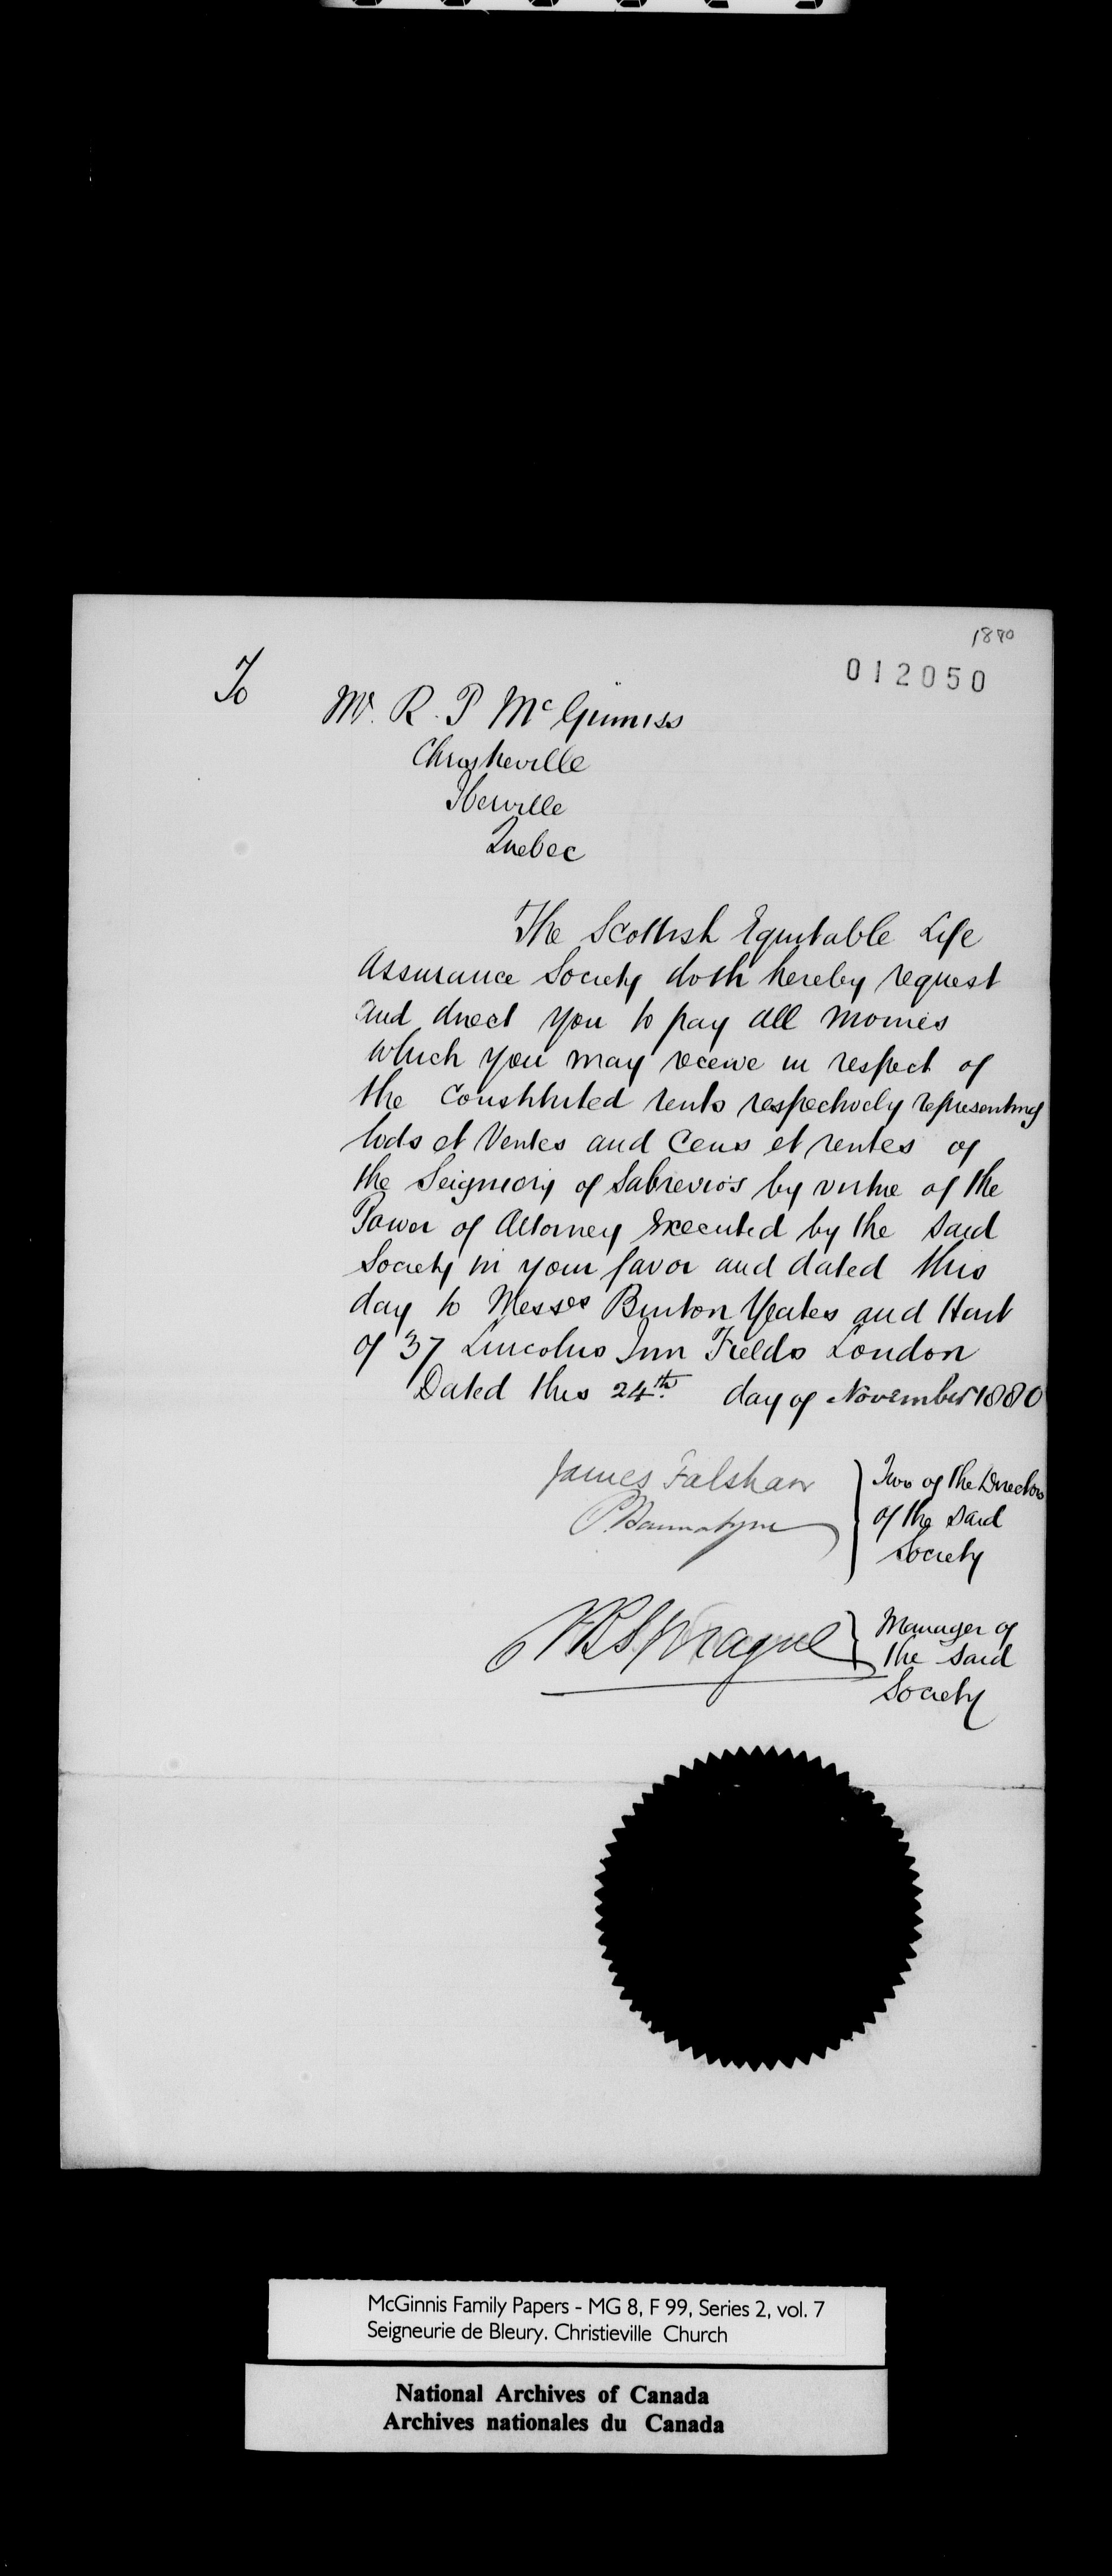 1880
012050
To
Mr. R. P McGinniss
Christieville
Iberville
Quebec
The Scottish Equitable Life
Assurance Society doth hereby request
and direct you to pay all monies
which you may receive in respect of
the Constituted rents respectively representing
lods et Ventes and Cens et rentes of
the Seigniory of Sabrevois by virtue of the
Power of Attorney Executed by the said
Society in your favor and dated this
day to Messrs Burton Yeates and Hart
of 37 Lincolns Inn Fields London
Dated this 24th day of November 1880
James Falshaw
Bannatyne
Two of the Directors
of the said
Society
Manager of
the said
Society
McGinnis Family Papers - MG 8, F 99, Series 2, vol. 7
Seigneurie de Bleury. Christieville Church
National Archives of Canada
Archives nationales du Canada